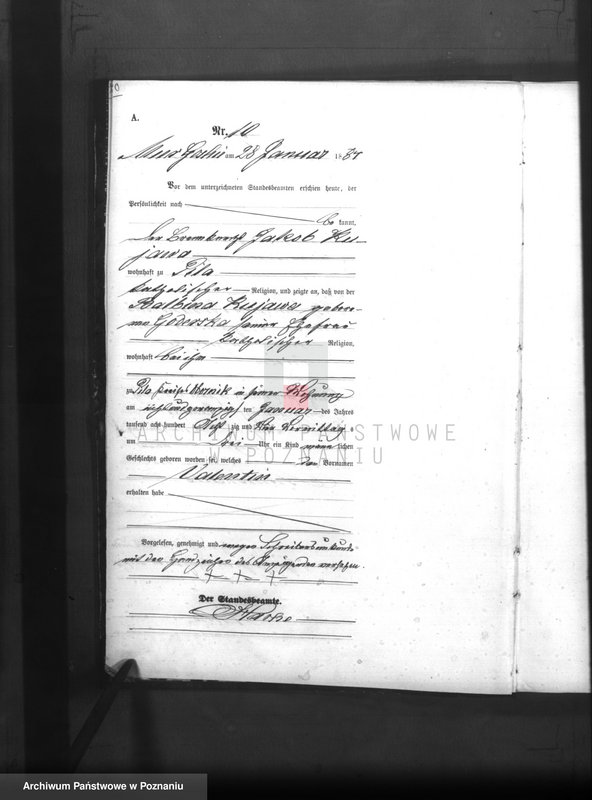 A.
Nr. 10
Mur. Goslin am 28 Januar 18 87
Vor dem unterzeichneten Standesbeamten erschien heute, der
Persönlichkeit nach
be kannt,
der Jakob Ku-
jawa
wohnhaft zu Pila
katholischer Religion, und zeigte an, daß von der
Balbina Kujawa gebore-
nen seiner Ehefrau
katholischer Religion,
wohnhaft bei ihm
zu Pila Kreises Obornik in seiner Wohnung
am ten Januar des Jahres
tausend acht hundert Acht zig und Vormittag
um Uhr ein Kind männ lichen
Geschlechts geboren worden sei, welches den Vornamen
Valentin
erhalten habe
Vorgelesen, genehmigt und wegen Schreibensunkunde
mit den Handzeichen des Anzeigenden versehen.
+ + +
Der Standesbeamte.
ARCHIWUM PAŃSTWOWE
W POZNANIU
Archiwum Państwowe w Poznaniu